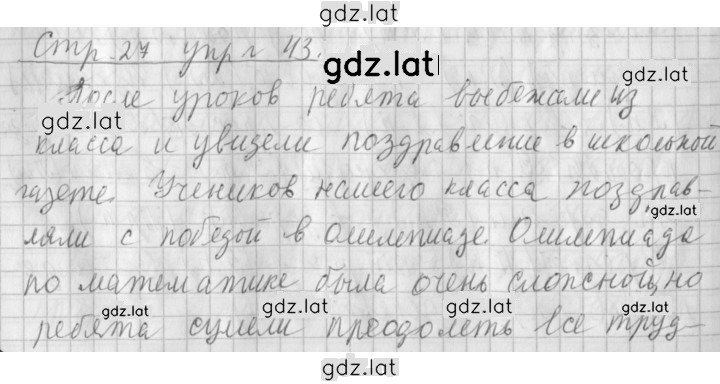 gdz.lat
Стр. 27 упр. 43.
gdz.lat
После уроков ребята выбежали из
gdz.lat
класса и увидели поздравление в школьной
газете. Учеников нашего класса поздрав-
gdz.lat
ляли с победой в олимпиаде. Олимпиада
по математике была очень сложной, но
gdz.lat gdz.lat gdz.lat
ребята сумели преодолеть все труд-
gdz.lat